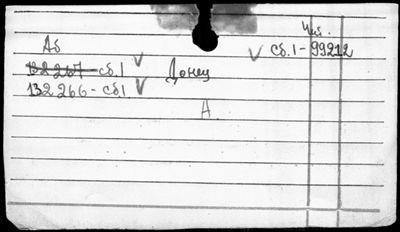 Чит.
Аб
сб.1-99212
132267-сб.1 Донец
132266-сб1.
А.